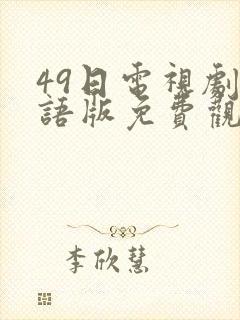 49日電視劇
語版免費觀
李欣慧